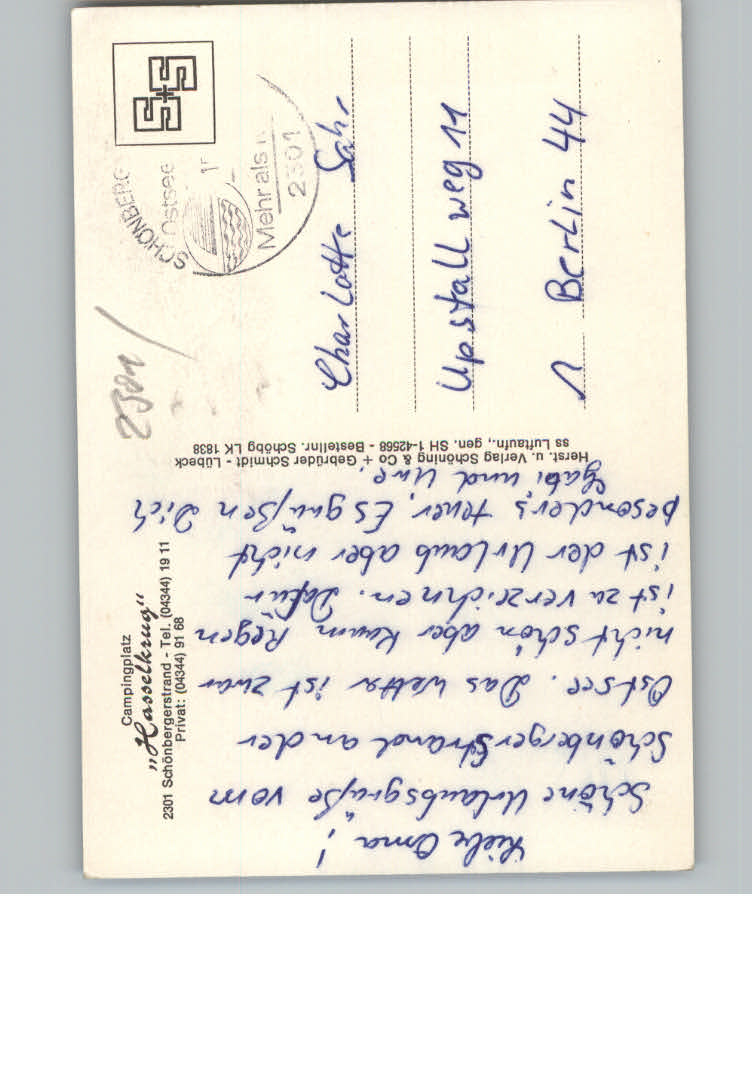 Campingplatz
„Hasselkrug"
2301 Schönbergerstrand - Tel. (04344) 19 11
Privat: (04344) 91 68
Liebe Oma!
Schöne Urlaubsgrüße vom
Schönberger Strand an der
Ostsee. Das Wetter ist zwar
nicht schön aber kaum Regen
ist zu verzeichnen. Dafür
ist der Urlaub aber nicht
besonders teuer. Es grüßen Dich
Gabi und Uwe.
Herst. u. Verlag Schöning & Co + Gebrüder Schmidt - Lübeck
ss Luftaufn., gen. SH 1-42568 - Bestellnr. Schöbg LK 1838
2301
S+S
SCHÖNBERG
Ostsee
Mehr als
2301
Charlotte Sahr
Upstallweg 11
1 Berlin 44